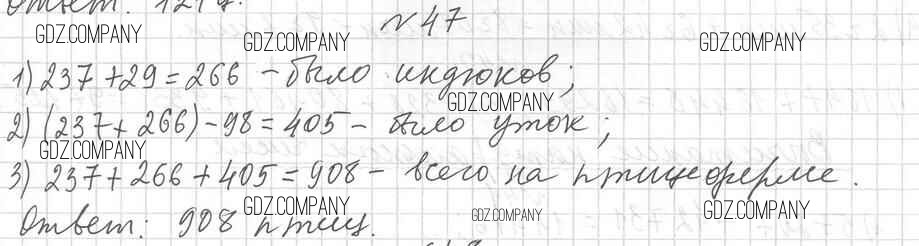 Ответ: 121
№ 47
GDZ.COMPANY
GDZ.COMPANY
GDZ.COMPANY
1) 237 + 29 = 266 – было индюков;
GDZ.COMPANY
2) (237 + 266) – 98 = 405 – было уток;
GDZ.COMPANY
3) 237 + 266 + 405 = 908 – всего на птицеферме.
Ответ: 908 птиц.
GDZ.COMPANY
GDZ.COMPANY
GDZ.COMPANY